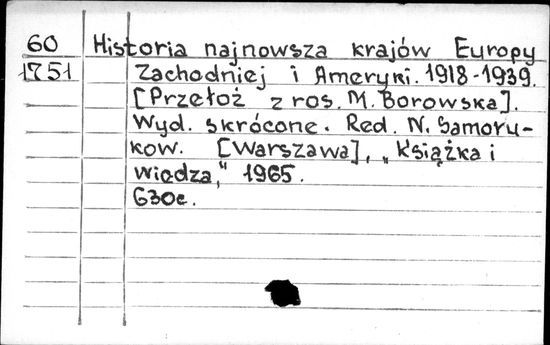 60 Historia najnowsza krajów Europy
1751 Zachodniej i Ameryki. 1918-1939.
[Przełoż z ros. M. Borowska].
Wyd. skrócone. Red. N. Samoru-
kow. [Warszawa], „Książka i
wiedza," 1965.
630c.